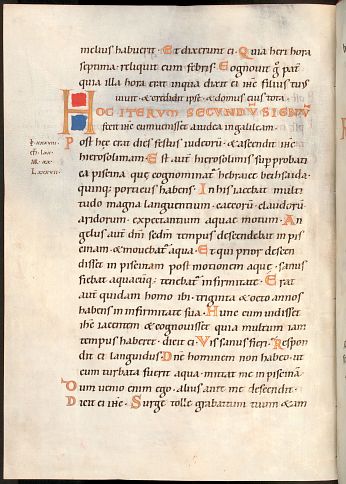 melius habuerit · Et dixerunt ei · Quia heri hora
septima · reliquit eum febris · Cognouit g̃ pat̃
quia illa hora erat in qua dixit ei ihc̄ filius tuus
uiuit · & credidit ipse · & domus eius tota ·
HOC ITERUM SECUNDUM SIGNŪ
fecit ihc̄ cum uenisset a iudea in galileam ·
Post hęc erat dies festus iudeorū · & ascendit ihc̄
hierosolimam · Est aut̄ hierosolimis sup probati
ca piscina quę cognominat̃ hebraice bethsaida ·
quinq; porticus habens · In his iacebat multi
tudo magna languentium · cęcorū · claudorū
aridorum · expectantium aquae motum · An
gelus aut̄ dn̄i sedm̄ tempus descendebat in pis
cinam · & mouebat̃ aqua · Et qui prior descen
disset in piscinam post motionem aquę · sanus
fiebat a quacūq; tenebat̃ infirmitate · Erat
aut̄ quidam homo ibi · triginta & octo annos
habens in infirmitate sua · Hunc cum uidisset
ihc̄ iacentem & cognouisset quia multum iam
tempus haberet · dicit ei · Vis sanus fieri · Respon
dit ei languidus · Dn̄e hominem non habeo · ut
cum turbata fuerit aqua · mittat me in piscinā ·
Dum uenio enim ego · alius ante me descendit ·
Dicit ei ihc̄ · Surge tolle grabattum tuum & am